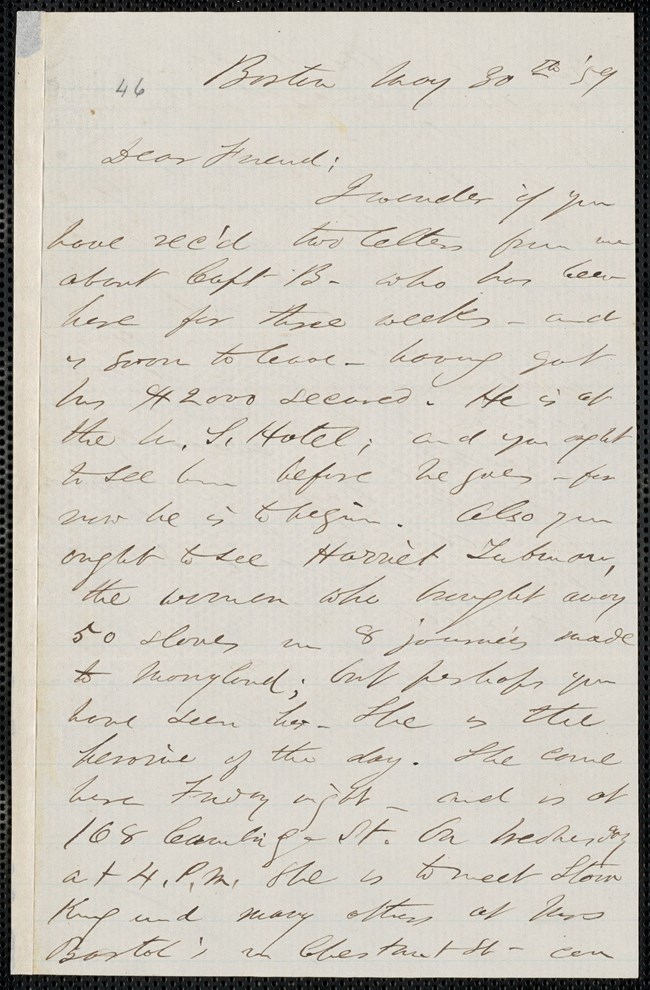 46
Boston May 30th '59
Dear Friend;
I wonder if you
have rec'd two letters from me
about Capt B- who has been
here for three weeks - and
is soon to leave - having got
his $2000 secured. He is at
the U. S. Hotel; and you ought
to see him before he goes - for
now he is to begin. Also you
ought to see Harriet Tubman,
the woman who brought away
50 slaves in 8 journeys made
to Maryland; but perhaps you
have seen her - She is the
heroine of the day. She came
here Friday night - and is at
168 Cambridge St. On Wednesday
at 4. P.M. She is to meet Starr
King and many others at Mrs
Bartol's in Chestnut St - can